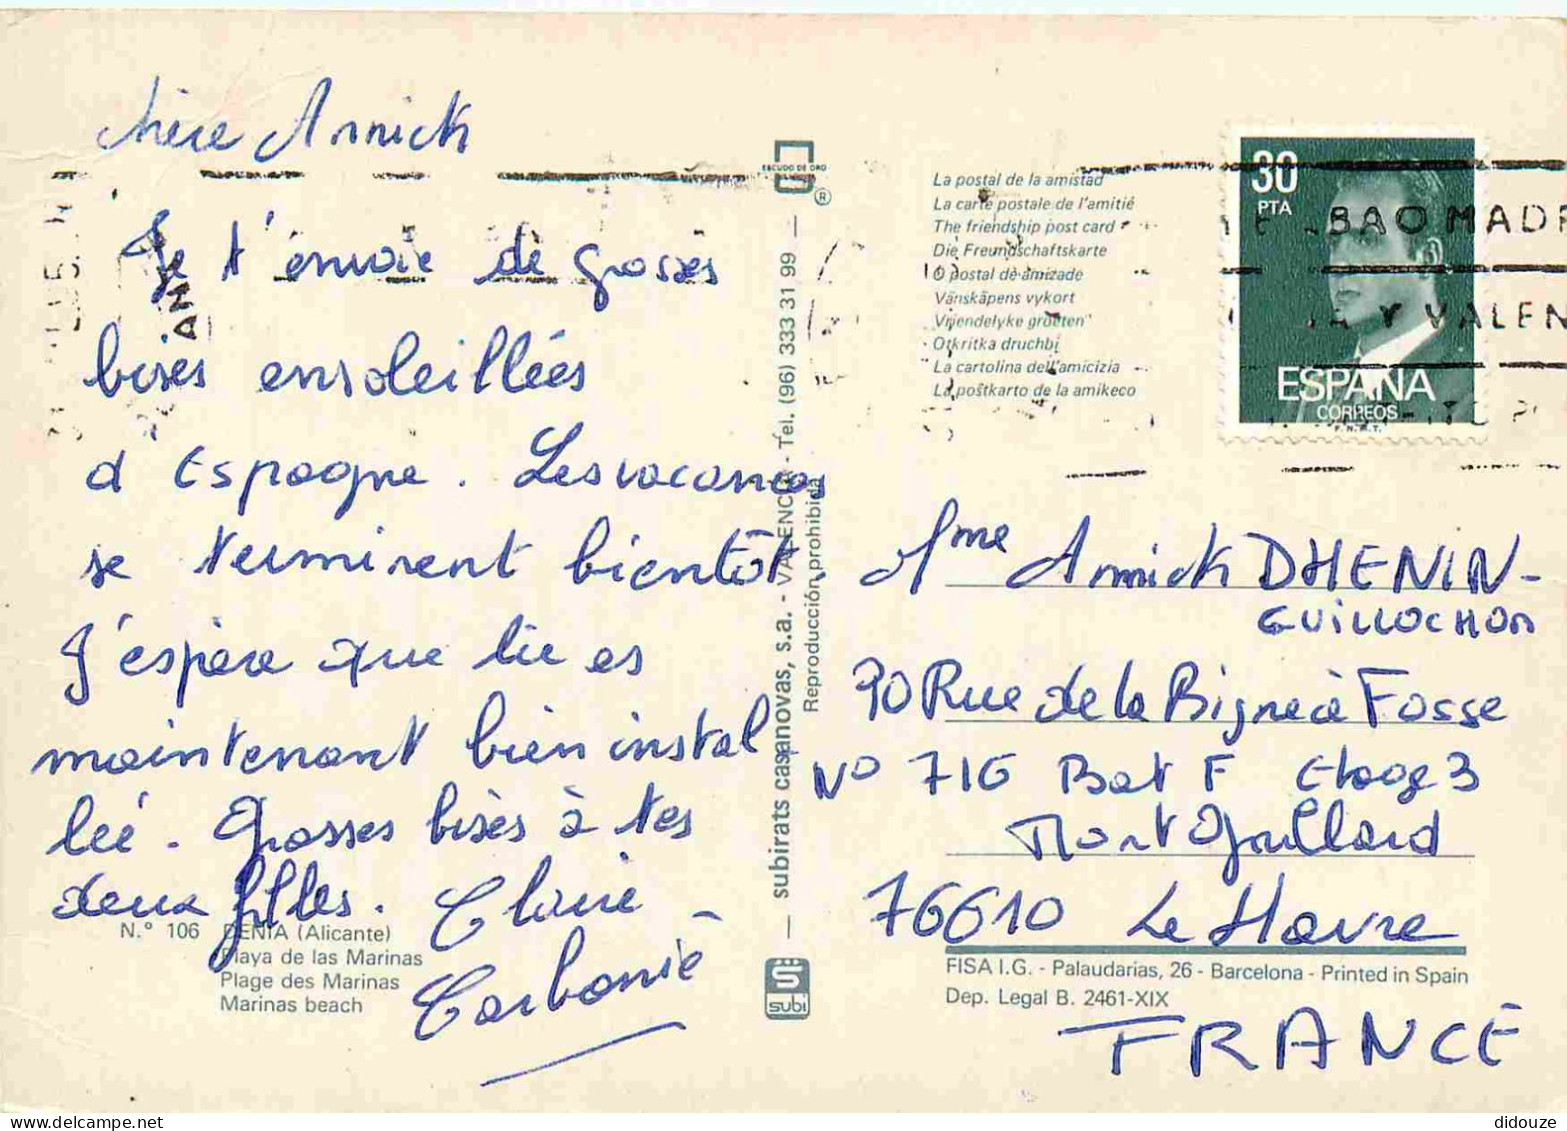 chère Annick
Je t'envoie de grosses
bises ensoleillées
d Espagne. Les vacances
se terminent bientôt.
J'espère que tu es
maintenant bien instal
lée. Grosses bises à tes
deux filles. Claire
N.° 106 DENIA (Alicante)
Playa de las Marinas
Plage des Marinas
Marinas beach
ESCUDO DE ORO
®
— subirats casanovas, s.a. - VALENCIA - Tel. (96) 333 31 99 —
Reproducción prohibida
subi
La postal de la amistad
La carte postale de l'amitié
The friendship post card
Die Freundschaftskarte
O postal de amizade
Vänskäpens vykort
Vriendelyke groeten
Otkritka druchbi
La cartolina dell'amicizia
La poŝtkarto de la amikeco
30
PTA
ESPAÑA
CORREOS
F.N.M.T.
BAO MADR
Y VALEN
Mme Annick DHENIN-
GUILLOCHON
90 Rue de la Bigne à Fosse
N° 716 Bat F Etage 3
Mont Gaillard
76610 Le Havre
FISA I.G. - Palaudarias, 26 - Barcelona - Printed in Spain
Dep. Legal B. 2461-XIX
FRANCE
didouze